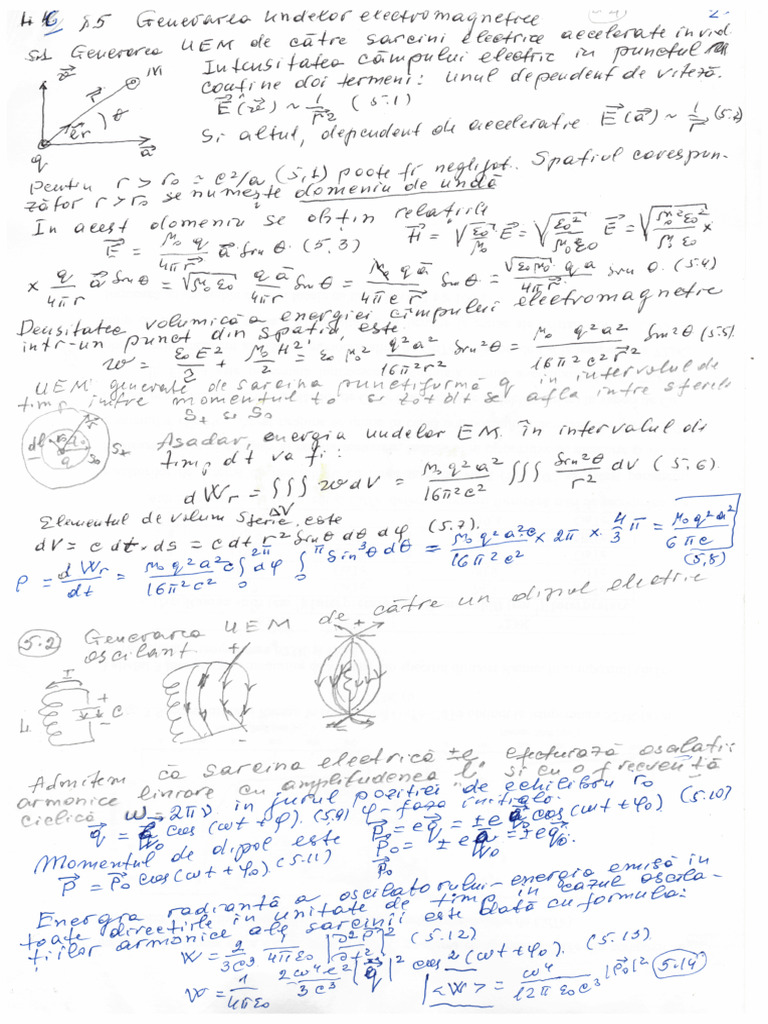 §5 Generarea undelor electromagnetice
5.1 Generarea UEM de către sarcini electrice accelerate individ.
Intensitatea câmpului electric în punctul M
conține doi termeni: unul dependent de viteză.
E⃗(v⃗) ~ 1/r² (5.1)
Și altul, dependent de accelerație E⃗(a⃗) ~ 1/r, (5.2)
M
r⃗
θ
e⃗r
q
a⃗
Pentru r > r₀ = c²/a (5,1) poate fi neglijat. Spațiul corespun-
zător r > r₀ se numește domeniu de undă
În acest domeniu se obțin relațiile
E⃗ = μ₀ q/4πr a⃗ sin θ. (5,3) H⃗ = √(ε₀/μ₀) E⃗ = √(ε₀²/μ₀ε₀) E⃗ = √(μ₀²ε₀²/μ₀ε₀) ×
× q/4πr a⃗ sin θ = √(μ₀ε₀) qa/4πr sin θ = μ₀qa/4πcr sin θ = √(ε₀μ₀)/4πr q a sin θ. (5.4)
Densitatea volumică a energiei câmpului electromagnetic
într-un punct din spațiu, este
w = ε₀E²/2 + μ₀H²/2 = ε₀ μ₀² q²a²/16π²r² sin²θ = μ₀ q²a²/16π²c²r² sin²θ (5.5).
UEM generate de sarcina punctiformă q în intervalul de
timp între momentul t₀ și t₀+dt se află între sferele
S₁ și S₀
Așadar, energia undelor EM în intervalul de
timp dt va fi:
dWr = ∫∫∫ w dV = μ₀q²a²/16π²c² ∫∫∫ sin²θ/r² dV (5.6)
ΔV
Elementul de volum sferic, este
dV = c dt × ds = c dt r² sin θ dθ dφ (5.7).
P = dWr/dt = μ₀q²a²c/16π²c² ∫₀²π dφ ∫₀π sin³θ dθ = μ₀q²a²c/16π²c² × 2π × 4/3 π = μ₀q²a²/6πc
(5,8)
5.2 Generarea UEM de către un dipol electric
oscilant
I
+
C
L
Admitem că sarcina electrică ±e efectuează oscilații
armonice liniare cu amplitudinea l și cu o frecvență
ciclică ω = 2πν în jurul poziției de echilibru r₀
cos(ωt + φ). (5.9) φ - faza inițială.
cos(ωt + φ₀) (5.10)
Momentul de dipol este
p⃗ = p⃗₀ cos(ωt + φ₀). (5.11)
Energia radiantă a oscilatorului - energia emisă în
toate direcțiile în unitate de timp în cazul oscila-
țiilor armonice ale sarcinii este dată cu formula:
W = 2/3c³ 1/4πε₀ |∂²p⃗/∂t²|² (5.12)
W = 1/4πε₀ 2ω⁴e²/3c³ |q⃗|² cos²(ωt + φ₀). (5.13)
|<W> = ω⁴/12πε₀c³ |p⃗₀|² (5.14)